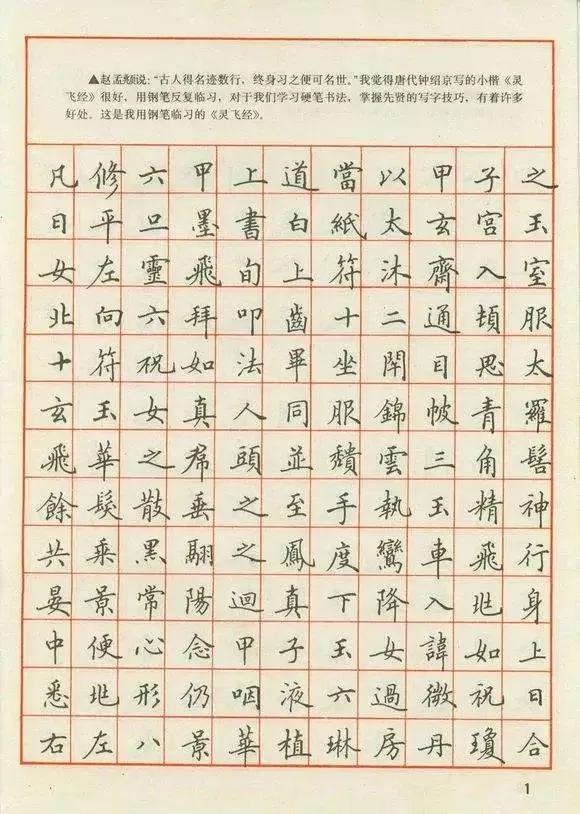 ▲赵孟頫说：“古人得名迹数行，终身习之便可名世。”我觉得唐代钟绍京写的小楷《灵
飞经》很好，用钢笔反复临习，对于我们学习硬笔书法，掌握先贤的写字技巧，有着许多
好处。这是我用钢笔临习的《灵飞经》。
凡修六甲上道當以甲子之
日平旦墨書白紙太玄宮玉
女左靈飛旬上符沐齋入室
北向六拜叩齒十二通頓服
十符祝如法畢坐閉目思太
玄玉女真人同服錦帔青羅
飛華之帬頭並頹雲三角髻
餘髮散垂之至手執玉精神
共乘黑翮之鳳度鸞車飛行
晏景常陽迴真下降入兆身
中便心念甲子玉女諱如上
悉兆形仍咽液六過微祝曰
右左八景華植琳房丹瓊合
1